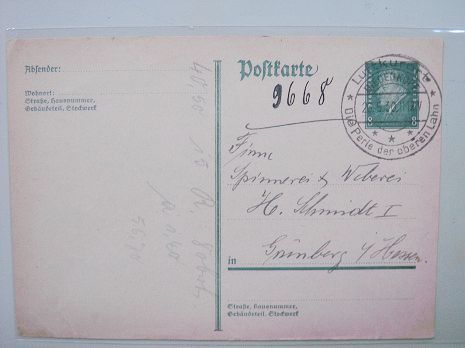 Absender:
Wohnort:
Straße, Hausnummer,
Gebäudeteil, Stockwerk
Postkarte
9668
Luftkurort
die Perle der oberen Lahn
8 8
Firma
Spinnerei & Weberei
H. Schmidt I
in Grünberg i/Hessen
Straße, Hausnummer,
Gebäudeteil, Stockwerk
48,60 15 R.
5670